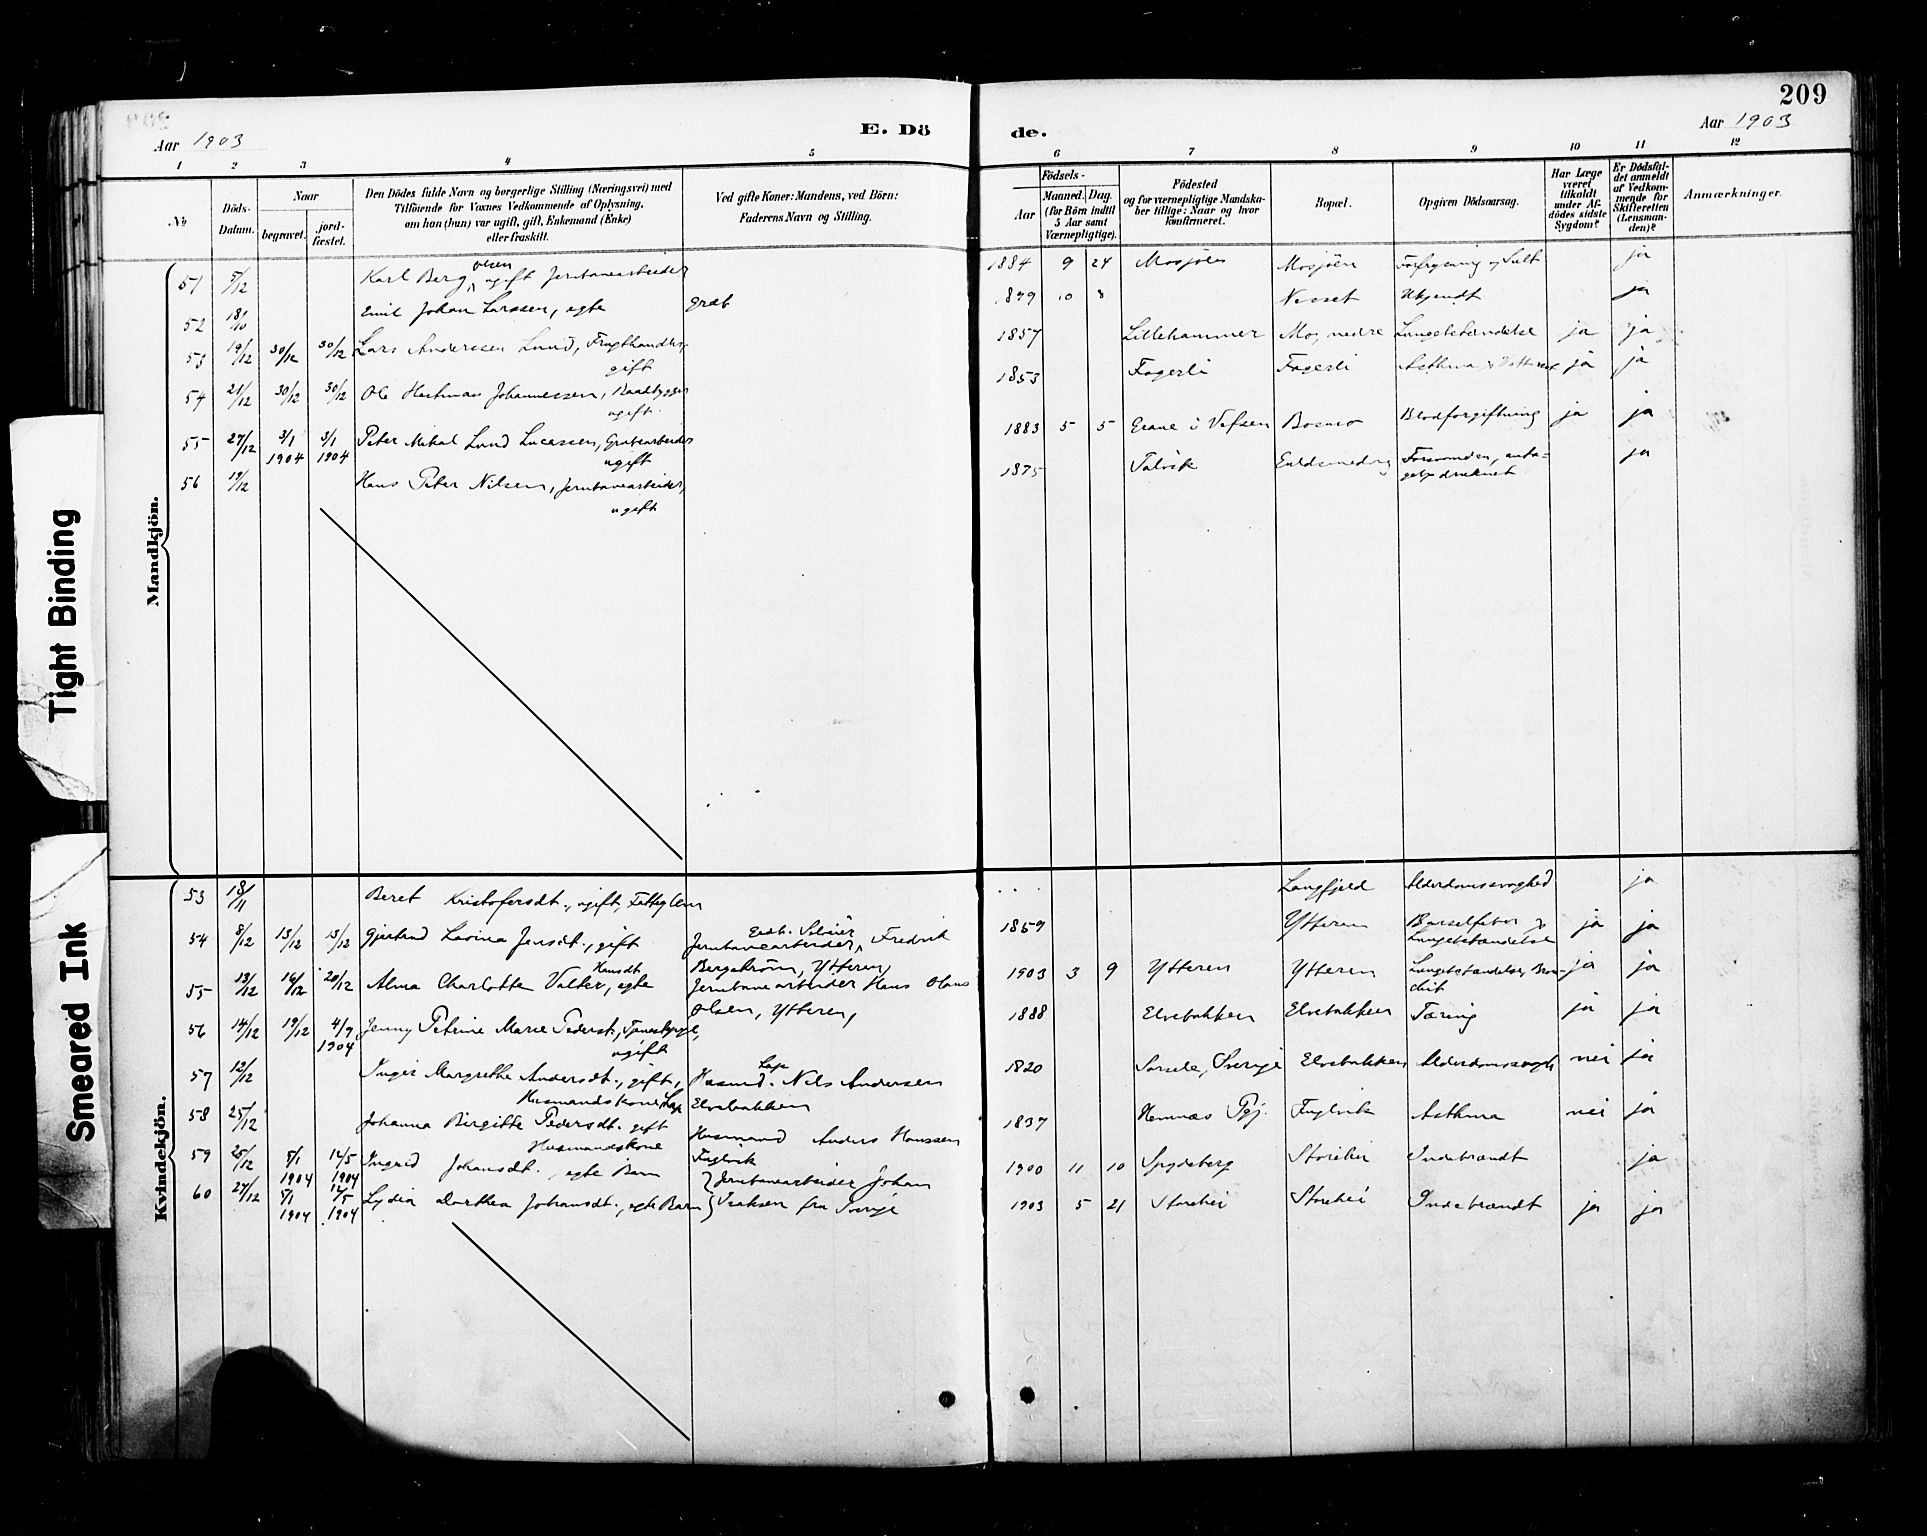 209
Aar 1903
E. Dö
de.
Aar 1903
1 2 3 4 5 6 7 8 9 10 11 12
No.
Döds-Datum.
Naar
begravet.
jord-fæstet.
Den Dödes fulde Navn og borgerlige Stilling (Næringsvei) med
Tilföiende for Voxnes Vedkommende af Oplysning,
om han (hun) var ugift, gift, Enkemand (Enke)
eller fraskilt.
Ved gifte Koner: Mandens, ved Börn:
Faderens Navn og Stilling.
Födsels-
Aar
Maaned. Dag.
(for Börn indtil
5 Aar samt
Værnepligtige).
Födested
og for værnepligtige Mandska-
ber tillige: Naar og hvor
konfirmeret.
Bopæl.
Opgiven Dödsaarsag.
Har Læge
været
tilkaldt
under Af-
dödes sidste
Sygdom?
Er Dödsfal-
det anmeldt
af Vedkom-
mende for
Skifteretten
(Lensman-
den)?
Anmærkninger.
Mandkjön.
51 5/12 Karl Berg Olsen, ugift Jernbanearbeider 1884 9 24 Mosjöen Mosjöen Forfrysning og Sult ja
52 18/10 Emil Johan Larssen, egte 10 8 Nesset Ukjendt ja
53 19/12 30/12 30/12 Lars Anderssen Lund, Frugthandler,
gift 1857 Lillehammer Mo, nedre Lungebetændelse ja ja
54 21/12 30/12 30/12 Ole Hartman Johannessen, Baadbygger
ugift. 1853 Fagerli Fagerli Asthma ja ja
55 27/12 3/1 1904 3/1 1904 Peter Mikal Lund Lucassen, Grubearbeider
ugift 1883 5 5 Grane i Vefsen Bosmo Blodforgiftning ja ja
56 19/12 Hans Peter Nilsen, Jernbanearbeider,
ugift 1875 Talvik Forsvunden, anta-
gelig druknet ja
Kvindekjön.
53 18/11 Beret Kristofersdt., ugift, Fattiglem Langfjeld Alderdomssvaghed ja
54 8/12 13/12 13/12 Gjertrud Lavina Jensdt., gift Jernbanearbeider, Fredrik
Bergström, Ytteren, 1859 Ytteren Barselfeber og
Lungebetændelse ja ja
55 13/12 16/12 20/12 Alma Charlotte Valter Hansdt, egte Jernbanearbeider Hans Olaus
Olsen, Ytteren, 1903 3 9 Ytteren Ytteren Lungebetændelse, Bron-
chit ja ja
56 14/12 19/12 4/9 1904 Jenny Petrine Marie Pedersdt., Tjenestepige,
ugift 1888 Elvebakken Elvebakken Tæring ja ja
57 12/12 Inger Margrethe Andersdt., gift,
Husmandskone, Lap Husmd. Lap Nils Andersen
Elvebakken 1820 Sorsele, Sverige Elvebakken Alderdomssvagh. nei ja
58 25/12 Johanna Birgitte Pedersdt. gift
Husmandskone Husmand Anders Hanssen
Fuglvik 1837 Hemnæs Pgj. Fuglvik Asthma nei ja
59 25/12 5/1 1904 14/5 1904 Ingrid Johansdt., egte Barn Jernbanearbeider Johan 1900 11 10 Spydeberg Storhei Indebrændt ja
60 27/12 5/1 1904 14/5 1904 Lydia Dorthea Johansdt., egte Barn Isaksen fra Sverige 1903 5 21 Storhei Storhei Indebrændt ja ja
Tight Binding
Smeared Ink